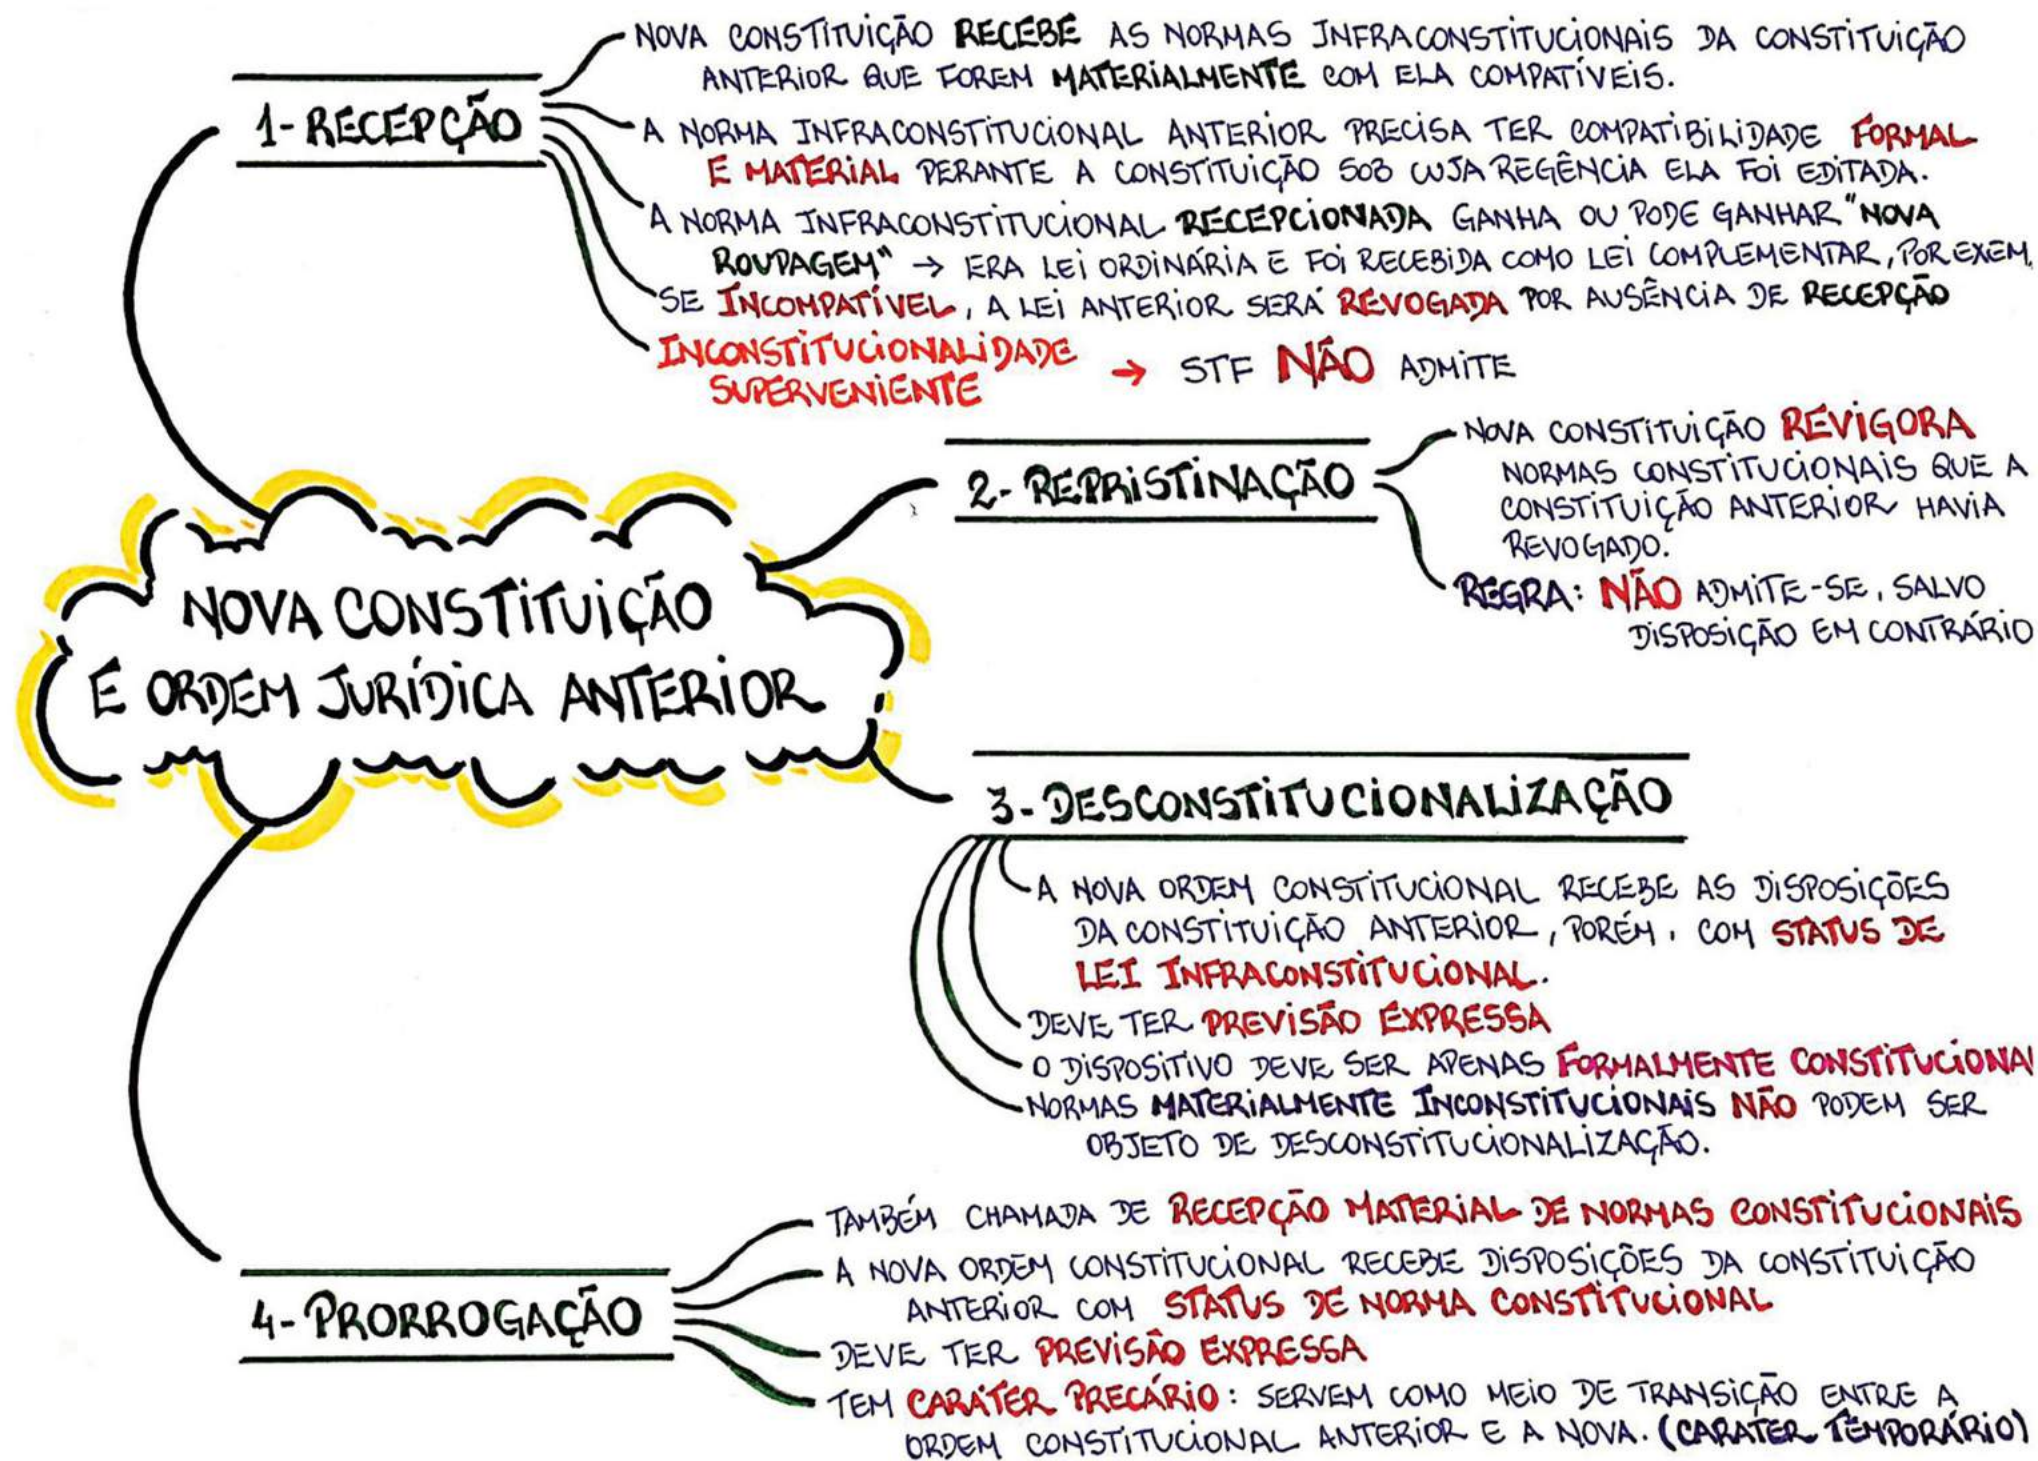 NOVA CONSTITUIÇÃO RECEBE AS NORMAS INFRACONSTITUCIONAIS DA CONSTITUIÇÃO
ANTERIOR QUE FOREM MATERIALMENTE COM ELA COMPATÍVEIS.
1-RECEPÇÃO
A NORMA INFRACONSTITUCIONAL ANTERIOR PRECISA TER COMPATIBILIDADE FORMAL
E MATERIAL PERANTE A CONSTITUIÇÃO SOB CUJA REGÊNCIA ELA FOI EDITADA.
A NORMA INFRACONSTITUCIONAL RECEPCIONADA GANHA OU PODE GANHAR "NOVA
ROUPAGEM" → ERA LEI ORDINÁRIA E FOI RECEBIDA COMO LEI COMPLEMENTAR, POR EXEM.
SE INCOMPATÍVEL, A LEI ANTERIOR SERÁ REVOGADA POR AUSÊNCIA DE RECEPÇÃO
INCONSTITUCIONALIDADE
SUPERVENIENTE → STF NÃO ADMITE
2- REPRISTINAÇÃO
NOVA CONSTITUIÇÃO REVIGORA
NORMAS CONSTITUCIONAIS QUE A
CONSTITUIÇÃO ANTERIOR HAVIA
REVOGADO.
REGRA: NÃO ADMITE-SE, SALVO
DISPOSIÇÃO EM CONTRÁRIO
NOVA CONSTITUIÇÃO
E ORDEM JURÍDICA ANTERIOR
3-DESCONSTITUCIONALIZAÇÃO
A NOVA ORDEM CONSTITUCIONAL RECEBE AS DISPOSIÇÕES
DA CONSTITUIÇÃO ANTERIOR, PORÉM, COM STATUS DE
LEI INFRACONSTITUCIONAL.
DEVE TER PREVISÃO EXPRESSA
O DISPOSITIVO DEVE SER APENAS FORMALMENTE CONSTITUCIONAL
NORMAS MATERIALMENTE INCONSTITUCIONAIS NÃO PODEM SER
OBJETO DE DESCONSTITUCIONALIZAÇÃO.
4-PRORROGAÇÃO
TAMBÉM CHAMADA DE RECEPÇÃO MATERIAL DE NORMAS CONSTITUCIONAIS
A NOVA ORDEM CONSTITUCIONAL RECEBE DISPOSIÇÕES DA CONSTITUIÇÃO
ANTERIOR COM STATUS DE NORMA CONSTITUCIONAL
DEVE TER PREVISÃO EXPRESSA
TEM CARÁTER PRECÁRIO: SERVEM COMO MEIO DE TRANSIÇÃO ENTRE A
ORDEM CONSTITUCIONAL ANTERIOR E A NOVA. (CARATER TEMPORÁRIO)